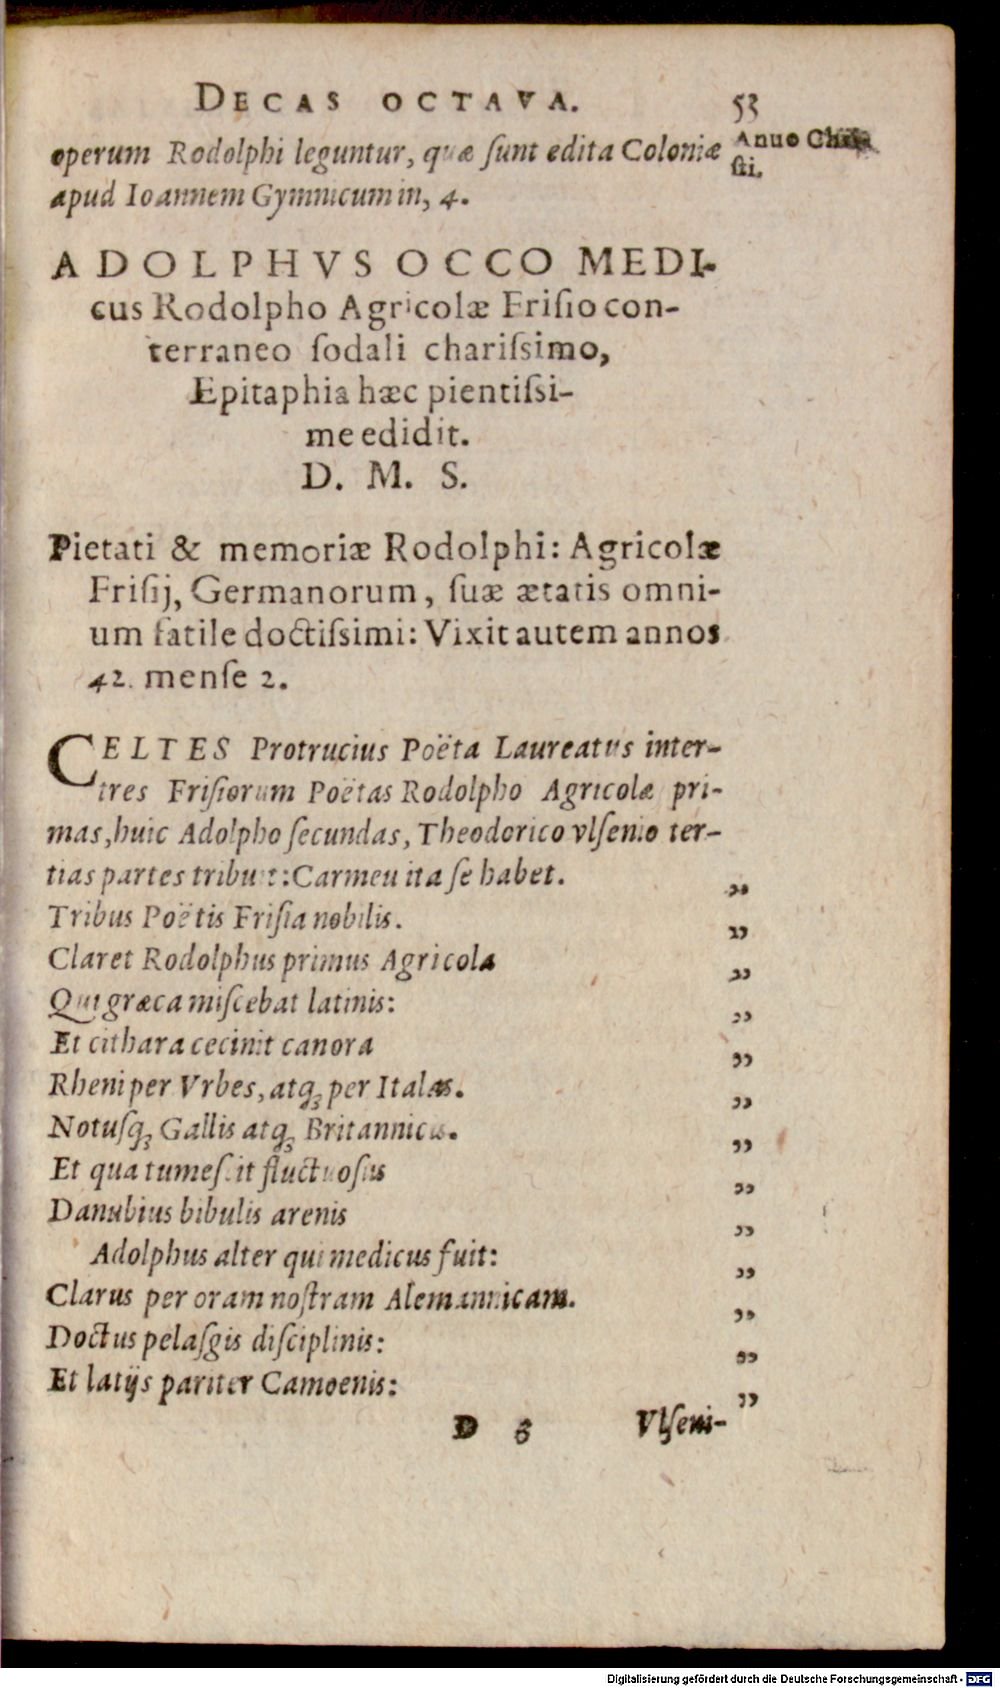 DECAS OCTAVA. 53
operum Rodolphi leguntur, quæ ſunt edita Coloniæ
Anuo Chri
ſti.
apud Ioannem Gymnicum in, 4.
ADOLPHVS OCCO MEDI-
cus Rodolpho Agricolæ Friſio con-
terraneo ſodali chariſsimo,
Epitaphia hæc pientiſsi-
me edidit.
D. M. S.
Pietati & memoriæ Rodolphi: Agricolæ
Friſij, Germanorum, ſuæ ætatis omni-
um fatile doctiſsimi: Vixit autem annos
42. menſe 2.
CELTES Protrucius Poëta Laureatus inter-
tres Friſiorum Poëtas Rodolpho Agricolæ pri-
mas, huic Adolpho ſecundas, Theodorico vlſenio ter-
tias partes tribuit: Carmeu ita ſe habet.
Tribus Poëtis Friſia nobilis. „
Claret Rodolphus primus Agricola „
Qui græca miſcebat latinis: „
Et cithara cecinit canora „
Rheni per Vrbes, atq; per Italas. „
Notuſq; Gallis atq; Britannicis. „
Et qua tumeſcit fluctuoſus „
Danubius bibulis arenis „
Adolphus alter qui medicus fuit: „
Clarus per oram noſtram Alemannicam. „
Doctus pelaſgis diſciplinis: „
Et latijs pariter Camoenis: „
D 6 Vlſeni-
Digitalisierung gefördert durch die Deutsche Forschungsgemeinschaft - DFG